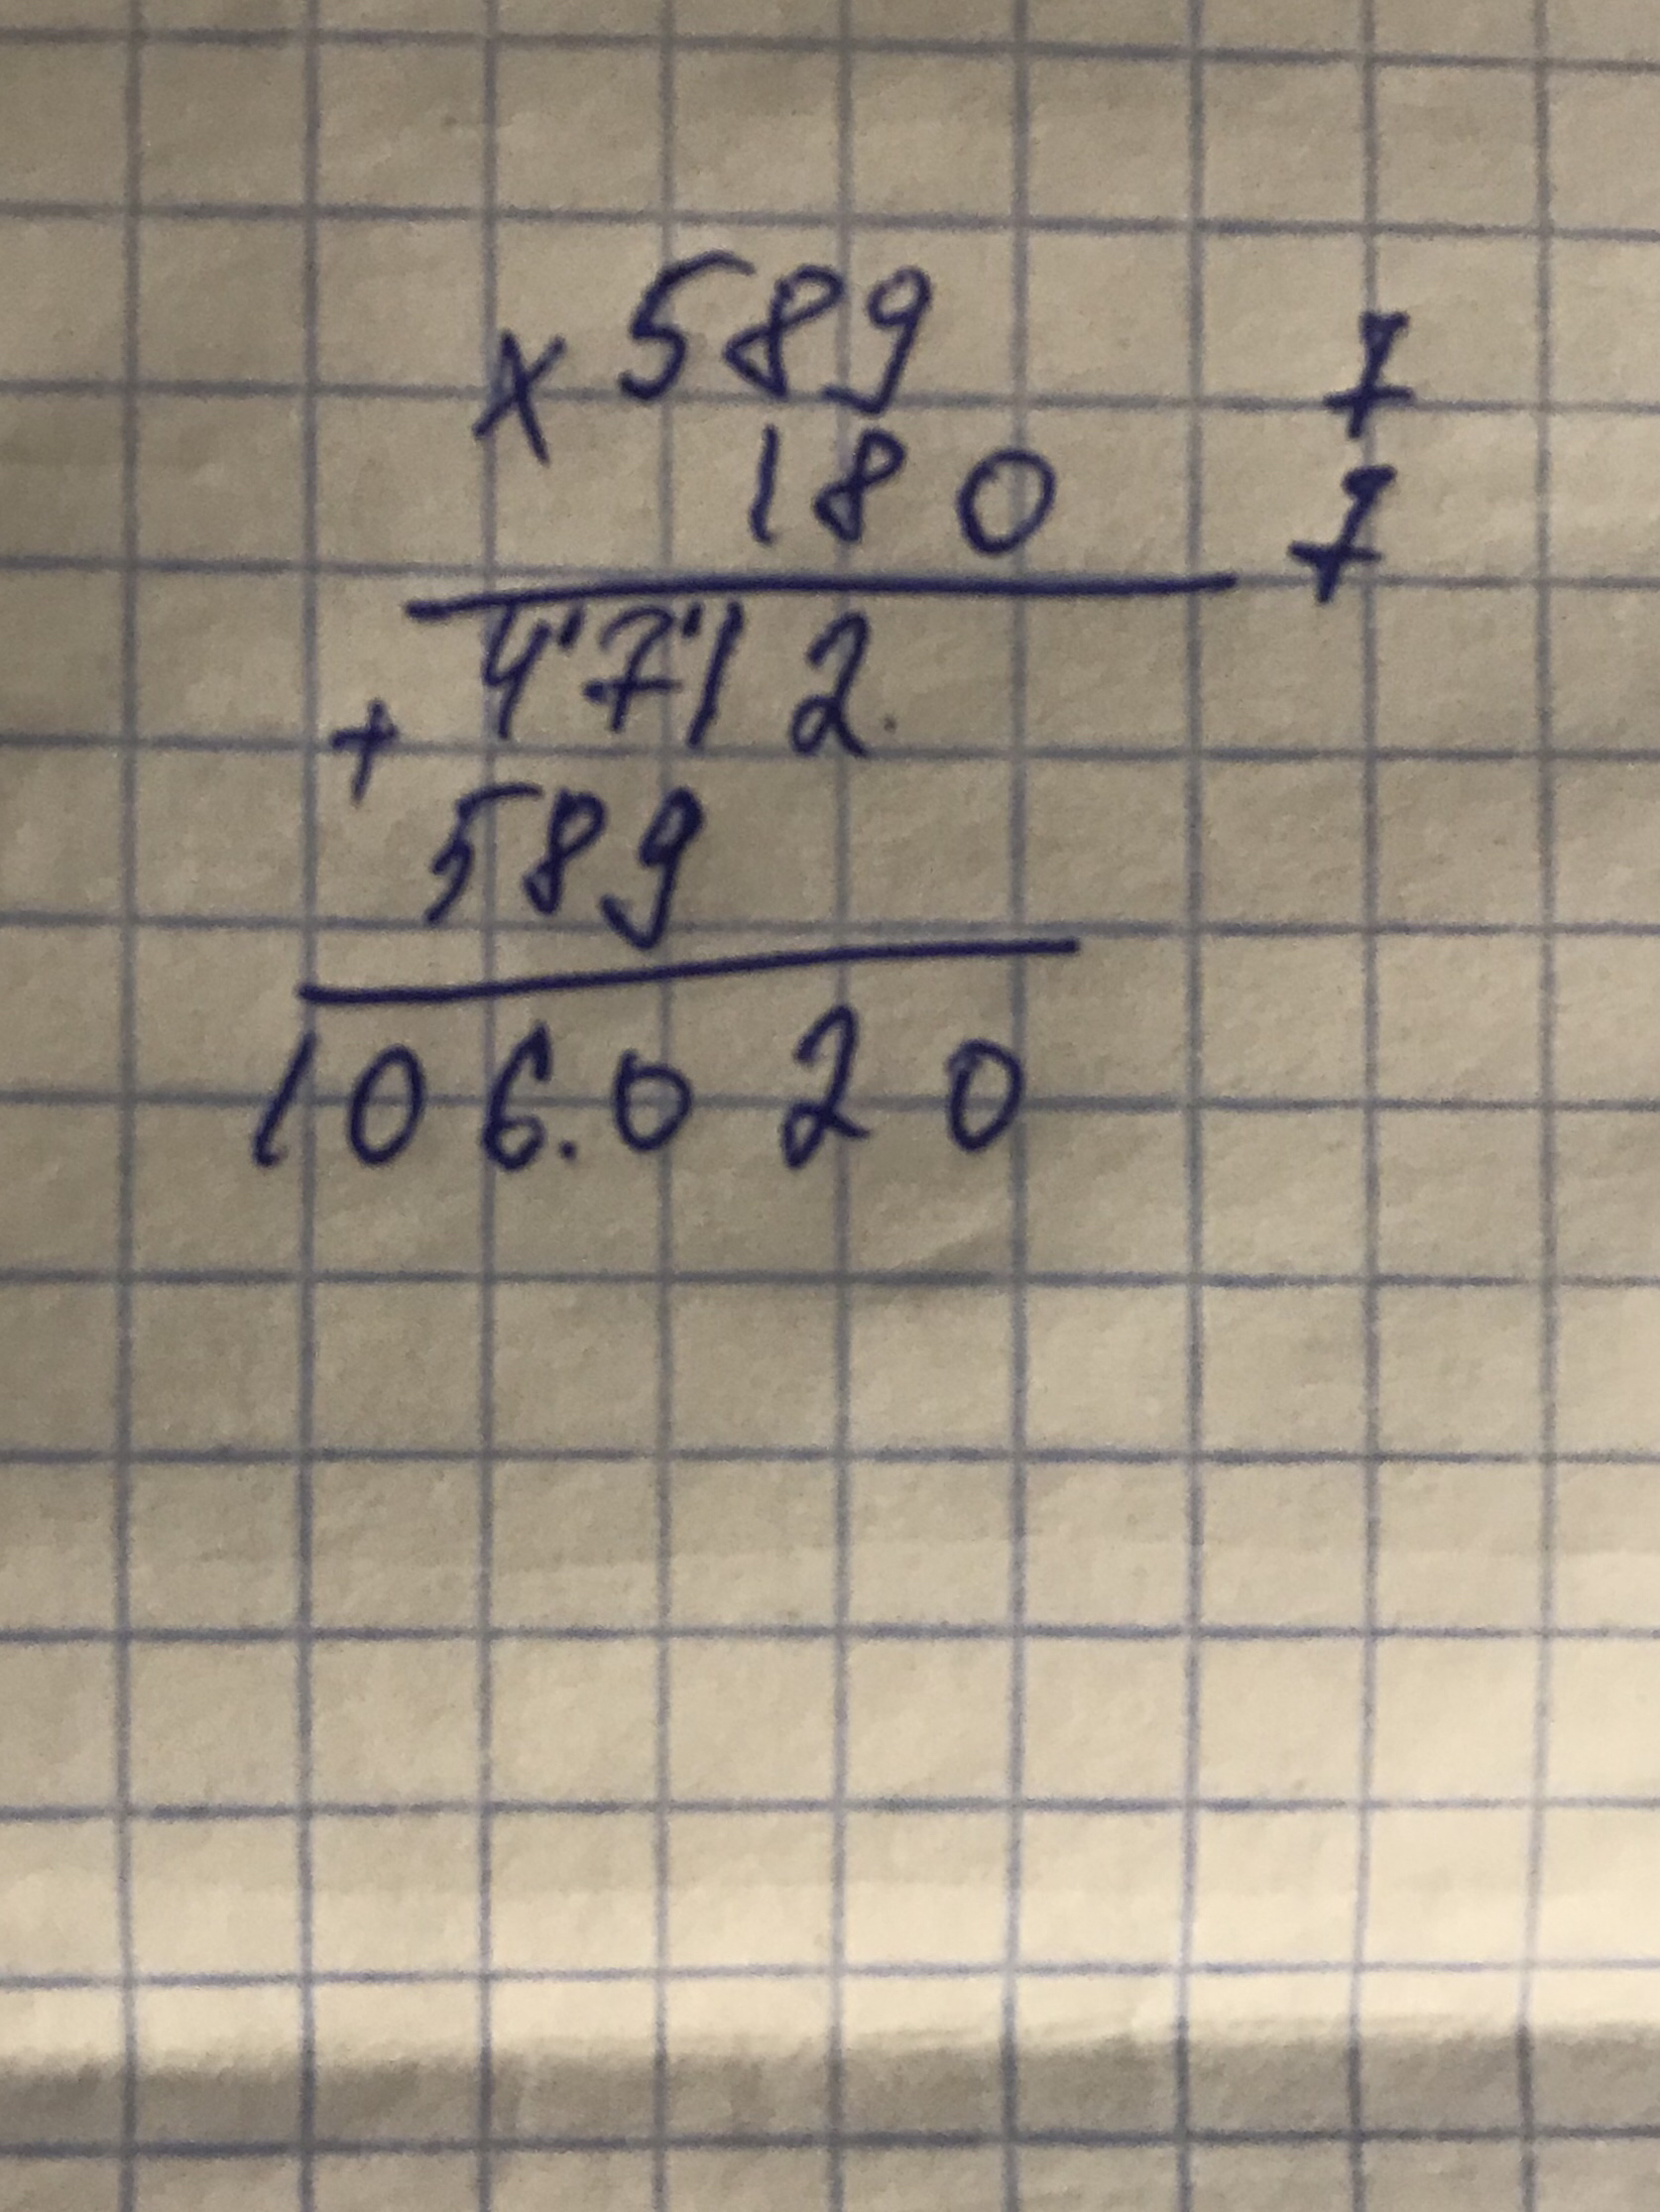 × 589 7
180 7
4'7'12.
+
589
106.020